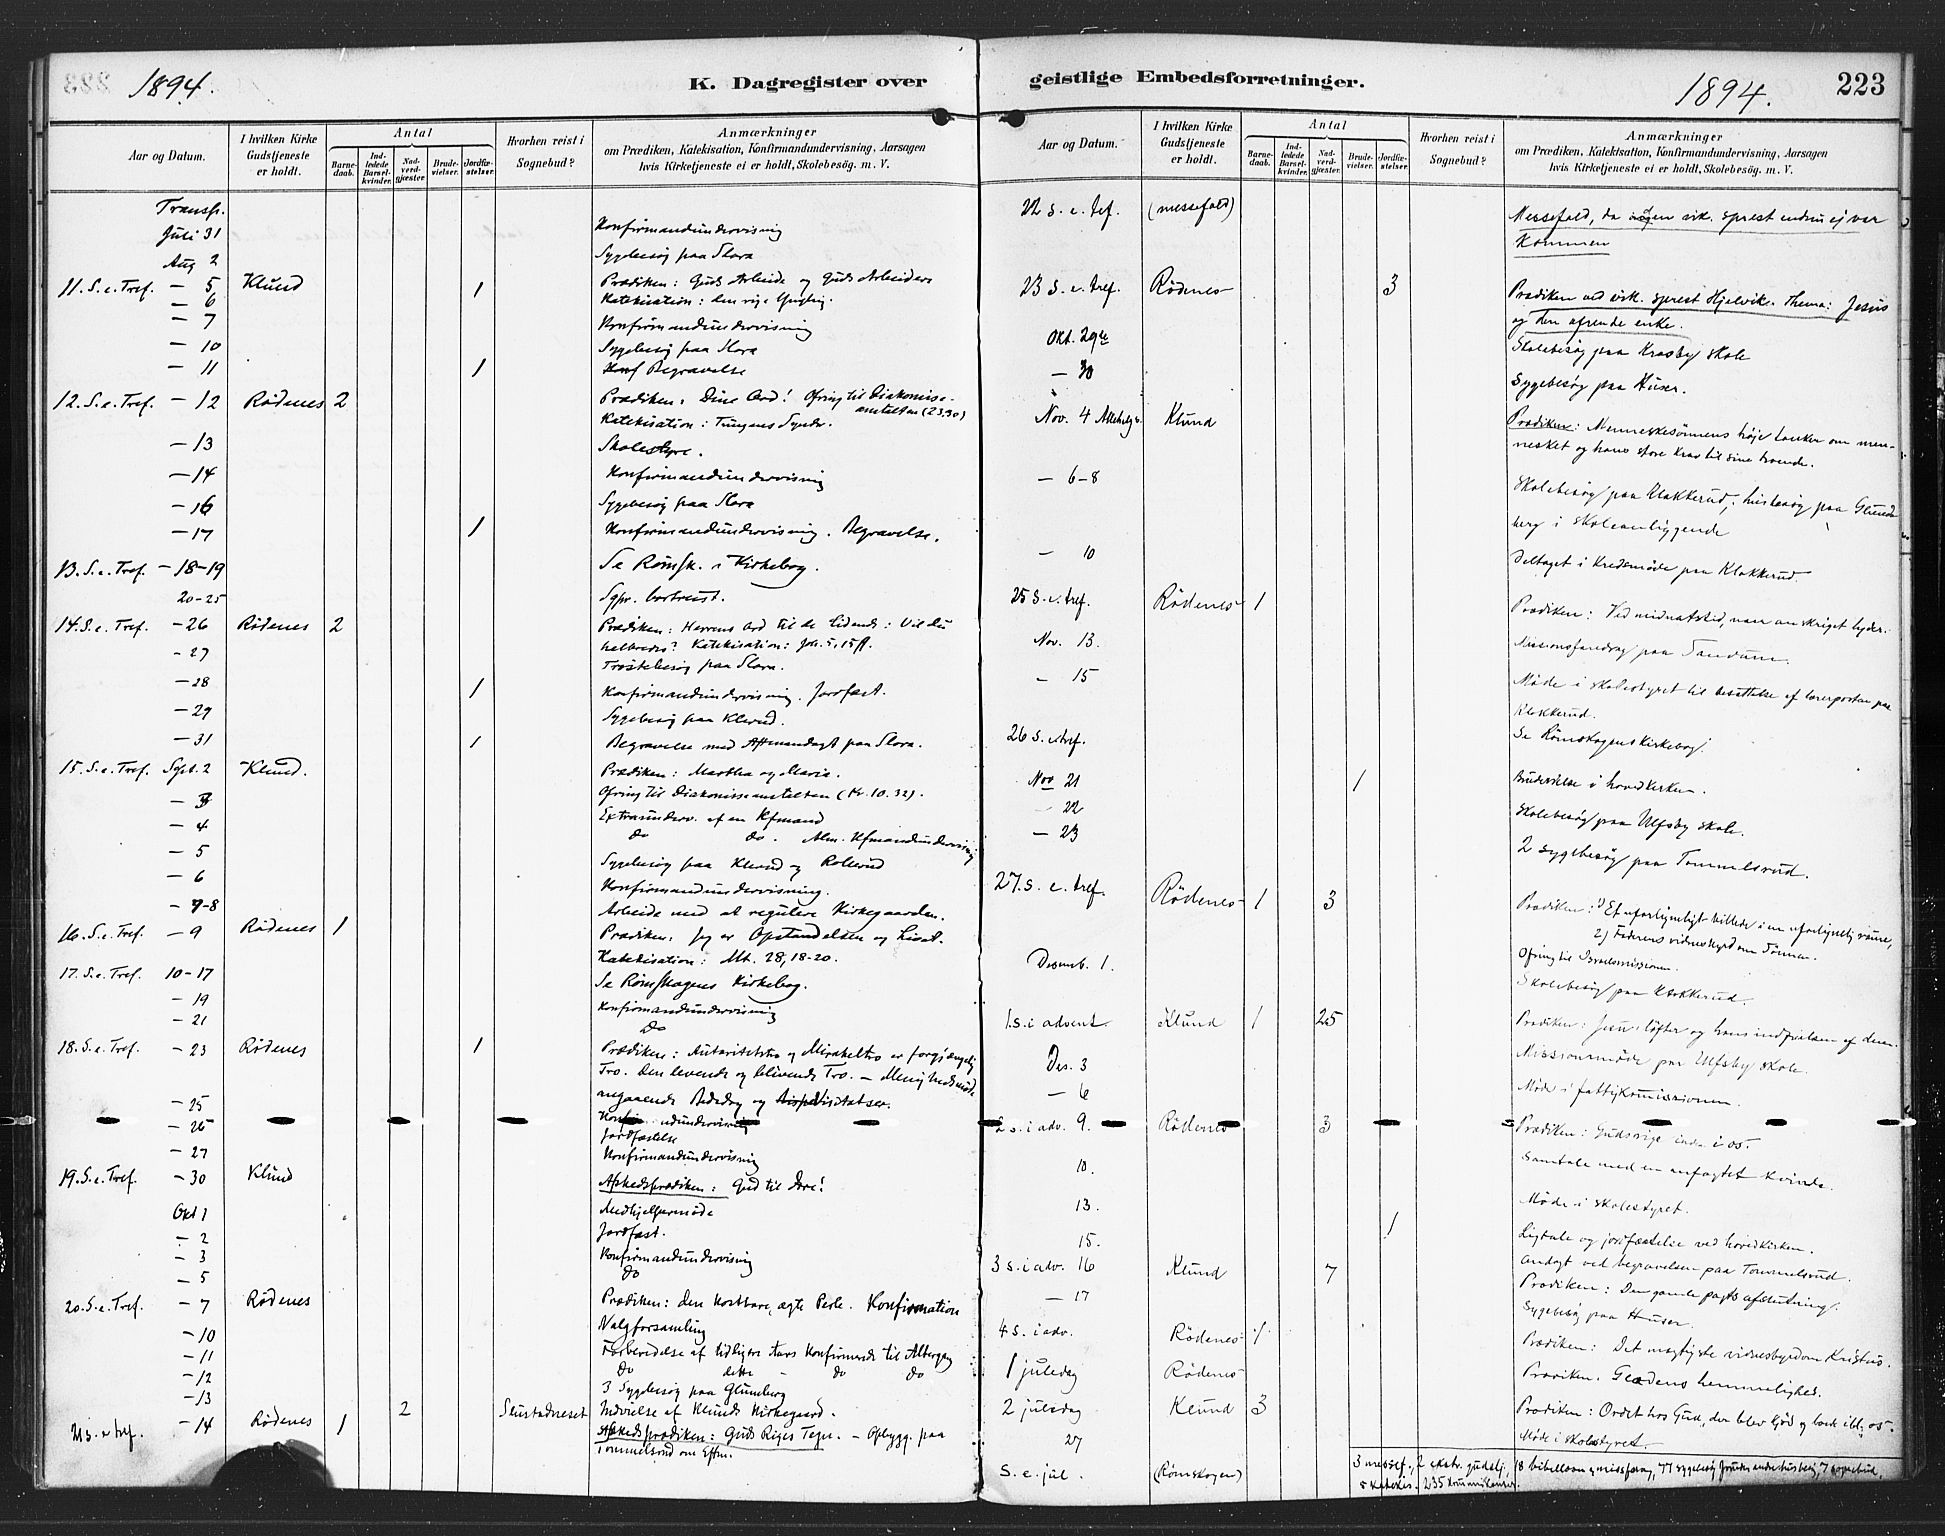 1894.
K. Dagregister over
Aar og Datum.
I hvilken Kirke Gudstjeneste er holdt.
Antal
Barnedaab.
Indledede Barselkvinder.
Nadverdgjæster
Brudevielser.
Jordfæstelser.
Hvorhen reist i Sognebud?
Anmærkninger
om Prædiken, Katekisation, Konfirmandundervisning, Aarsagen
hvis Kirketjeneste ei er holdt, Skolebesøg. m. V.
Transp.
Juli 31 Konfirmandundervisning
Aug 2 Sygebesøg paa Slora
11. S. e. Tref. – 5 Klund 1 Prædiken: Guds Arbeide og Guds Arbeidere
– 6 Katekisation: den rige Yngling.
– 7 Konfirmandundervisning
– 10 Sygebesøg paa Slora
– 11 1 Begravelse
12. S. e. Tref. – 12 Rødenes 2 Prædiken: Dine Ord! Ofring til Diakonisse-
anstalten (23,90)
Katekisation: Tungens Synder.
– 13 Skolestyre.
– 14 Konfirmandundervisning
– 16 Sygebesøg paa Slora
– 17 1 Konfirmandundervisning. Begravelse.
13. S. e. Tref. – 18-19 Se Rømsk. Kirkebog.
20-25 Sgpr. bortreist.
14. S. e. Tref. – 26 Rødenes 2 Prædiken: Herrens Ord til de Lidende: Vil du
helbredes? Katekisation: Joh. 5, 15 ff.
– 27 Trøstebesøg paa Slora.
– 28 1 Konfirmandundervisning. Jordfæst.
– 29 Sygebesøg paa Klerud.
– 31 1 Begravelse med paa Slora.
15. S. e. Tref. Sept. 2 Klund. Prædiken: Martha og Maria.
Ofring til Diakonisseanstalten (Kr. 10.32).
– 3 Extraunderv. af en Kfmand
– 4 Do do. Alm. Kfmandundervisning
– 5 Sygebesøg paa Klerud og Rollerud
– 6 Konfirmandundervisning.
– 7-8 Arbeide med at regulere Kirkegaarden.
16. S. e. Tref. – 9 Rødenes 1 Prædiken: Jeg er Opstandelsen og Livet.
Katekisation: Mt. 28, 18-20.
17. S. e. Tref. 10-17 Se Rømskogens Kirkebog.
– 19 Konfirmandundervisning
– 21 Do
18. S. e. Tref. – 23 Rødenes 1 Prædiken: Autoritetstro og Mirakeltro er forgjængelig
Tro. Den levende og blivende Tro. – Menighedsmøde
angaaende Bededag og Visitatser.
– 25
– 26 Jordfæstelse
– 27 Konfirmandundervisning
19. S. e. Tref. – 30 Klund Afskedsprædiken: Gud til Ære!
Okt 1 Medhjelpermøde
– 2 Jordfæst.
– 3 Konfirmandundervisning
– 5 Do
20. S. e. Tref. – 7 Rødenes Prædiken: Den kostbare, ægte Perle. Konfirmation
– 10 Valgforsamling
– 11 Forberedelse af tidligere Aars Konfirmerede til Altergang
– 12 Do dette – do do
– 13 3 Sygebesøg paa Glumberg
2 Slustadneset Indvielse af Klunds Kirkegaard.
21 s. e. tref. – 14 Rødenes 1 Afskedsprædiken: Guds Riges Tegn. – Opbygg. paa
Tommelsrud om Eftm.
geistlige Embedsforretninger.
1894.
223
Aar og Datum.
I hvilken Kirke Gudstjeneste er holdt.
Antal
Barnedaab.
Indledede Barselkvinder.
Nadverdgjæster.
Brudevielser.
Jordfæstelser.
Hvorhen reist i Sognebud?
Anmærkninger
om Prædiken, Katekisation, Konfirmandundervisning, Aarsagen
hvis Kirketjeneste ei er holdt, Skolebesøg. m. V.
22 s. e. tref. (messefald) Messefald, da vik. sprest endnu ej var
kommen
23 s. e. tref. Rødenes 3 Prædiken ved vik. sprest Hjelvik. Thema: Jesus
og den
Okt. 29de Skolebesøg paa Krosby skole
– 30 Sygebesøg paa Huser.
Nov. 4 Allehelg. Klund Prædiken: Menneskesønnens høje tanker om men-
nesket og hans store krav til sine troende.
– 6-8 Skolebesøg paa Klokkerud, husbesøg paa Glum-
berg i skoleanliggende
– 10 Deltaget i Kredsmøde paa Klokkerud.
25 s. e. tref. Rødenes 1 Prædiken: Ved midnatstid, naar anskriget lyder.
Nov. 13. Missionsforedrag paa Sandum.
– 15 Møde i skolestyret til besættelse af lærerposten paa
Klokkerud.
26 s. e. tref. Se Rømskogens kirkebog.
Nov 21 1 Brudevielse i hovedkirken.
– 22 Skolebesøg paa Ulfsby skole.
– 23 2 sygebesøg paa Tommelsrud.
27. s. e. tref. Rødenes 1 3 Prædiken: 1) Et uforligneligt billede i en uforlignelig ramme,
2) Faderens vidnesbyrd om Sønnen.
Ofring til Israelsmissionen.
Desemb. 1. Skolebesøg paa Klokkerud.
1. s. i advent. Klund 1 25 Prædiken: Jesu løfter og hans indfrielsen af dem.
Des. 3 Missionsmøde paa Ulfsby skole.
– 6 Møde i fattigkomissionen.
2 s. i adv. 9. Rødenes 3 Prædiken: Gudsrige inden i os.
10. Samtale med en anfægtet kvinde.
13. Møde i skolestyret.
15. 1 Ligtale og jordfæstelse ved hovedkirken.
Andagt ved begravelsen paa Tommelsrud.
3 s. i adv. 16 Klund 7 Prædiken: Den gamle pagts afslutning.
– 17 Sygebesøg paa Huser.
4 s. i adv. Rødenes 1 Prædiken: Det mægtigste vidnesbyrd om Kristus.
1 juledag Rødenes Prædiken. Glædens hemmelighed.
2 juledag Klund 3 Prædiken: Ordet hos Gud, der blev kjød og bode iblt. os.
27 Møde i skolestyret.
S. e. jul. (Rømskogen) 3 messef., 2 ekstr. gudstj., 18 bibellæsn. og missforedrag, 77 sygebesøg
5 katekis. 235 kommunikanter.